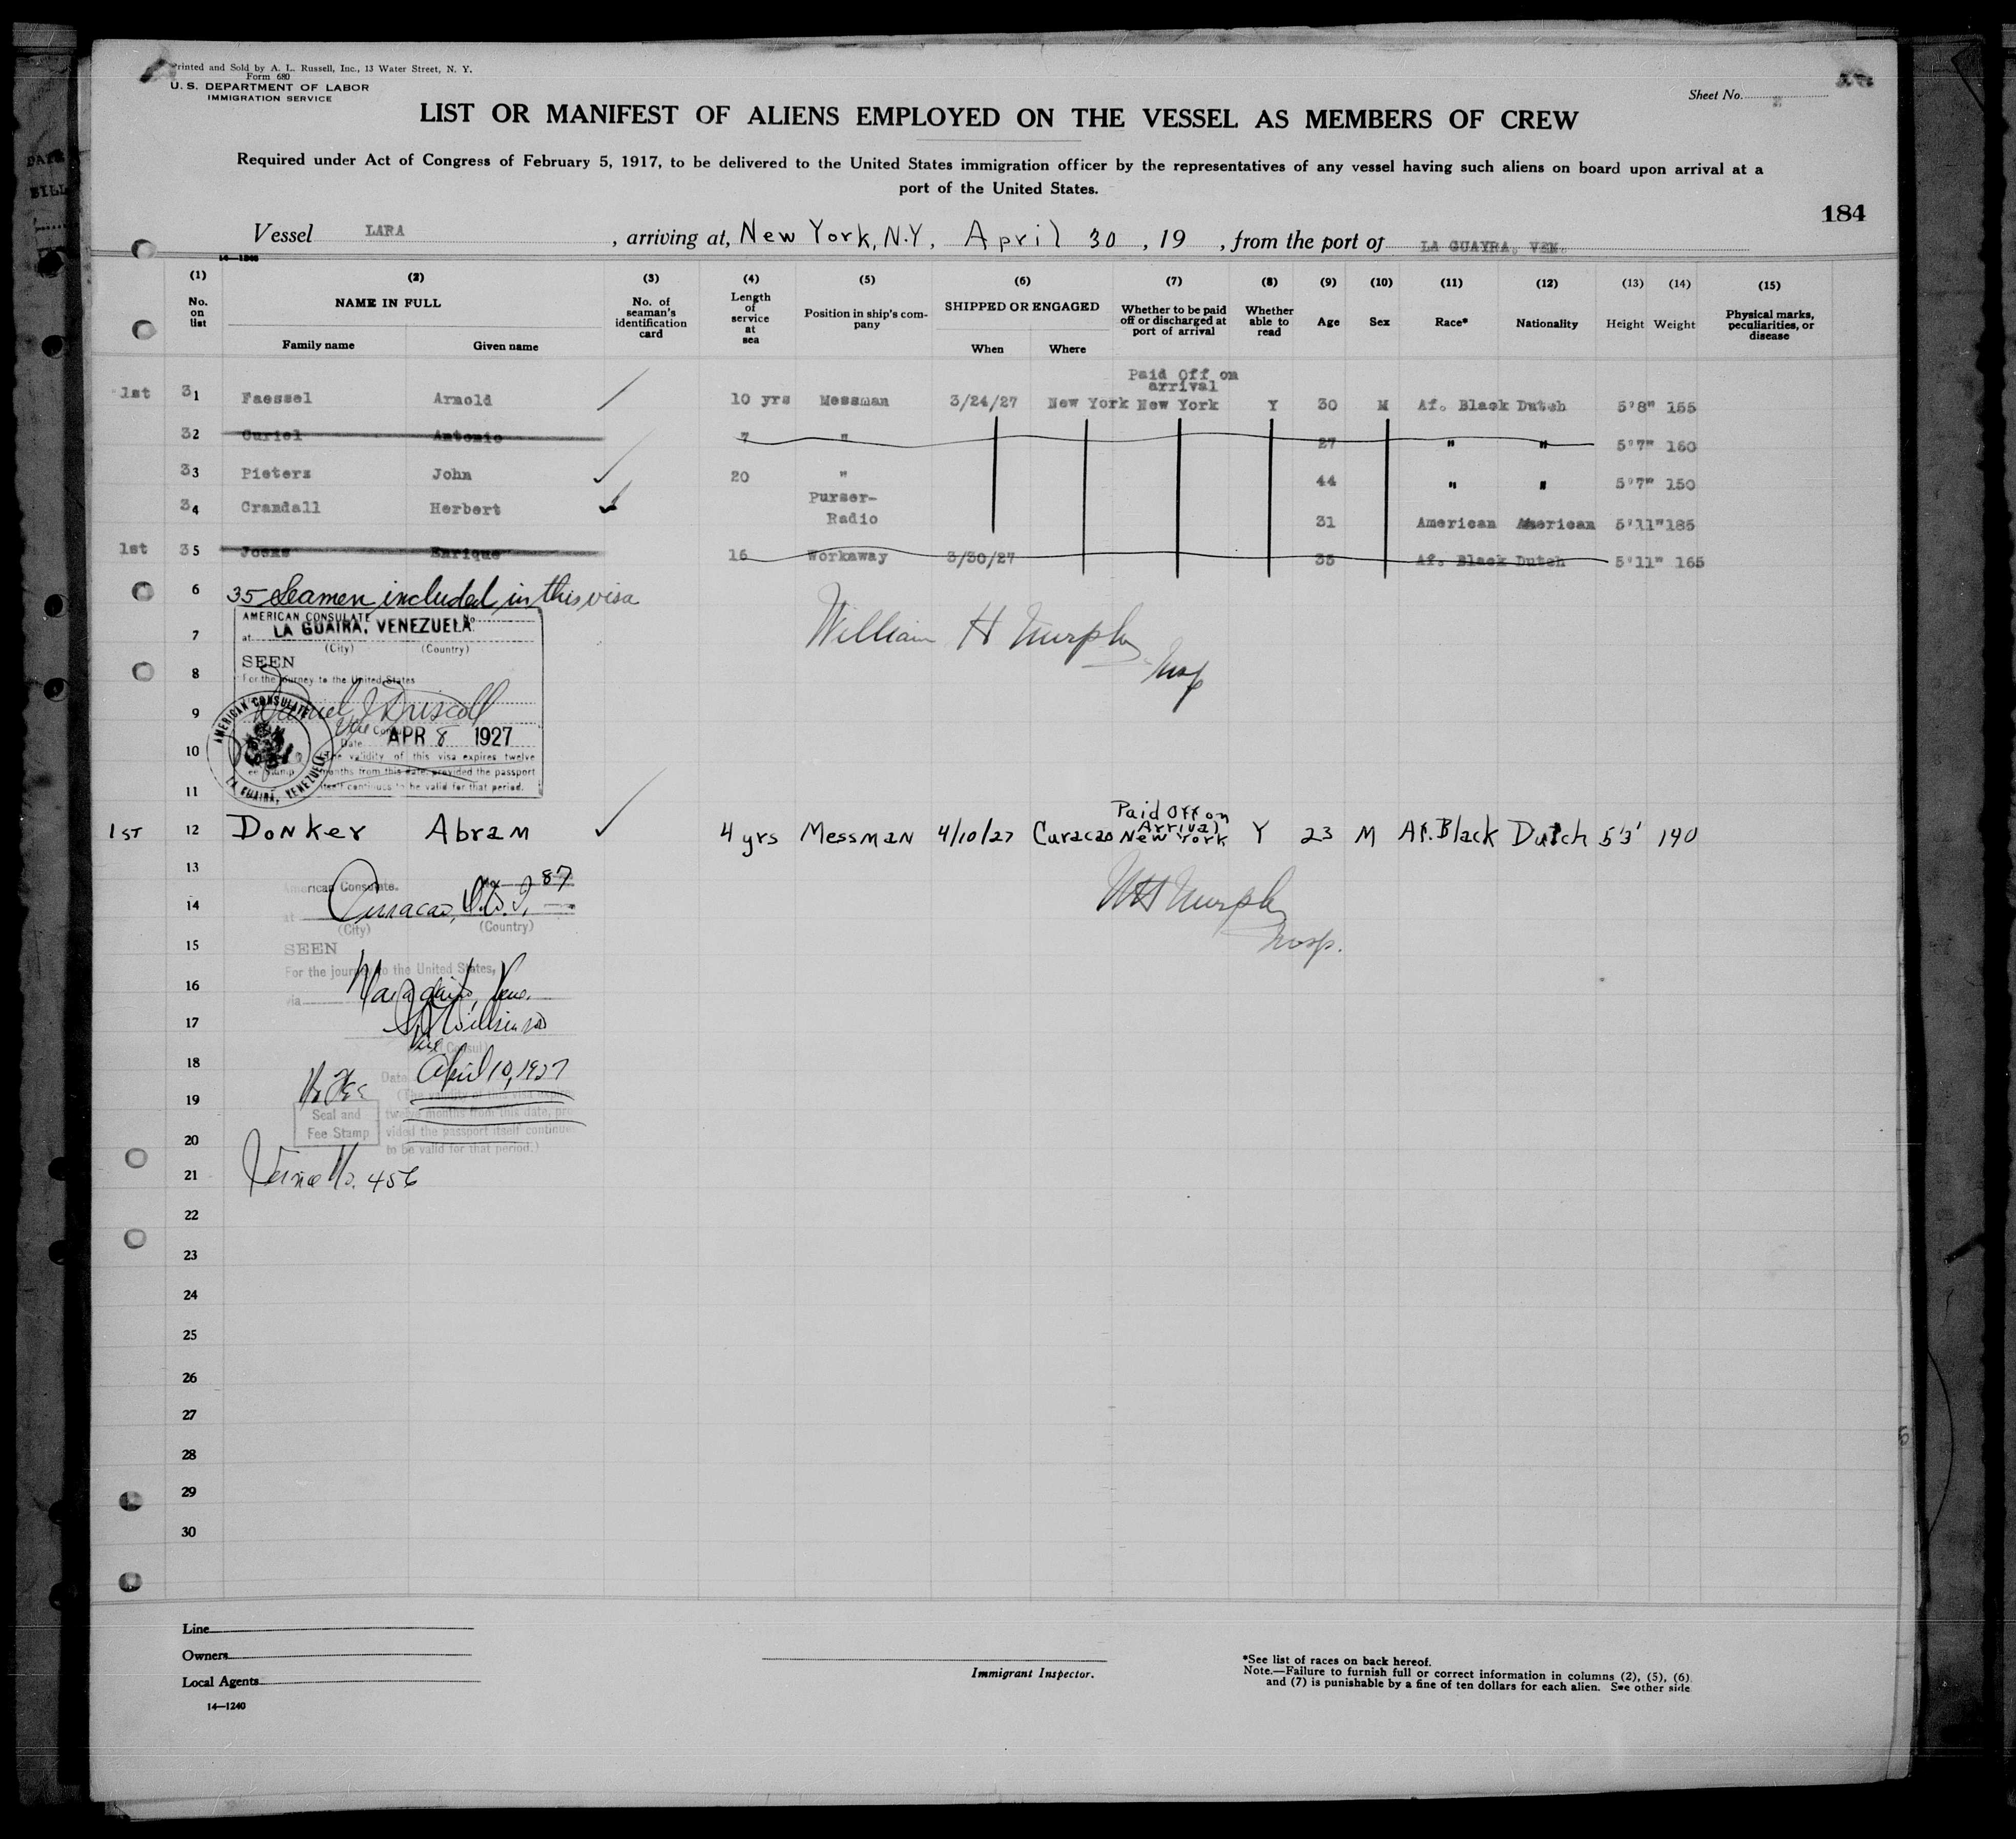 Printed and Sold by A. L. Russell, Inc., 13 Water Street, N. Y.
Form 680
U. S. DEPARTMENT OF LABOR
IMMIGRATION SERVICE
Sheet No.
LIST OR MANIFEST OF ALIENS EMPLOYED ON THE VESSEL AS MEMBERS OF CREW
Required under Act of Congress of February 5, 1917, to be delivered to the United States immigration officer by the representatives of any vessel having such aliens on board upon arrival at a
port of the United States.
184
Vessel LARA , arriving at, New York, N.Y, April 30 , 19 , from the port of LA GUAYRA, VEN.
14—1240
(1) (2) (3) (4) (5) (6) (7) (8) (9) (10) (11) (12) (13) (14) (15)
No. on list NAME IN FULL Family name Given name No. of seaman's identification card Length of service at sea Position in ship's company SHIPPED OR ENGAGED When Where Whether to be paid off or discharged at port of arrival Whether able to read Age Sex Race* Nationality Height Weight Physical marks, peculiarities, or disease
Paid Off on
arrival
1st 31 Faessel Arnold 10 yrs Messman 3/24/27 New York New York Y 30 M Af. Black Dutch 5'8" 155
32 Curiel Antonio 7 " 27 " " 5'7" 160
33 Pieters John 20 " 44 " " 5'7" 150
34 Crandall Herbert Purser-
Radio 31 American American 5'11" 185
1st 35 Josas Enrique 16 Workaway 3/30/27 35 Af. Black Dutch 5'11" 165
6 35 Seamen included in this visa
AMERICAN CONSULATE No.
7 at LA GUAIRA, VENEZUELA
(City) (Country)
William H Murphy
Insp
SEEN
8 For the journey to the United States
9 Daniel J Driscoll
Vice Consul
10 Date APR 8 1927
The validity of this visa expires twelve
months from this date, provided the passport
11 itself continues to be valid for that period.
AMERICAN CONSULATE
LA GUAIRA, VENEZUELA
Paid Off on
Arrival
1ST 12 Donker Abram 4 yrs Messman 4/10/27 Curacao New York Y 23 M Af. Black Dutch 5'3' 190
13
American Consulate. No. 87
14 at Curacao, D.W.I.
(City) (Country)
WH Murphy
Insp.
15 SEEN
For the journey to the United States,
16 via Maracaibo, Ven.
17
Vice Consul
18 Date April 10, 1927
No Fee
19 (The validity of this visa expires
Seal and twelve months from this date, pro-
Fee Stamp vided the passport itself continues
20 to be valid for that period.)
21 Service No. 456
22
23
24
25
26
27
28
29
30
Line
Owners
Local Agents
14—1240
Immigrant Inspector.
*See list of races on back hereof.
Note.—Failure to furnish full or correct information in columns (2), (5), (6)
and (7) is punishable by a fine of ten dollars for each alien. See other side